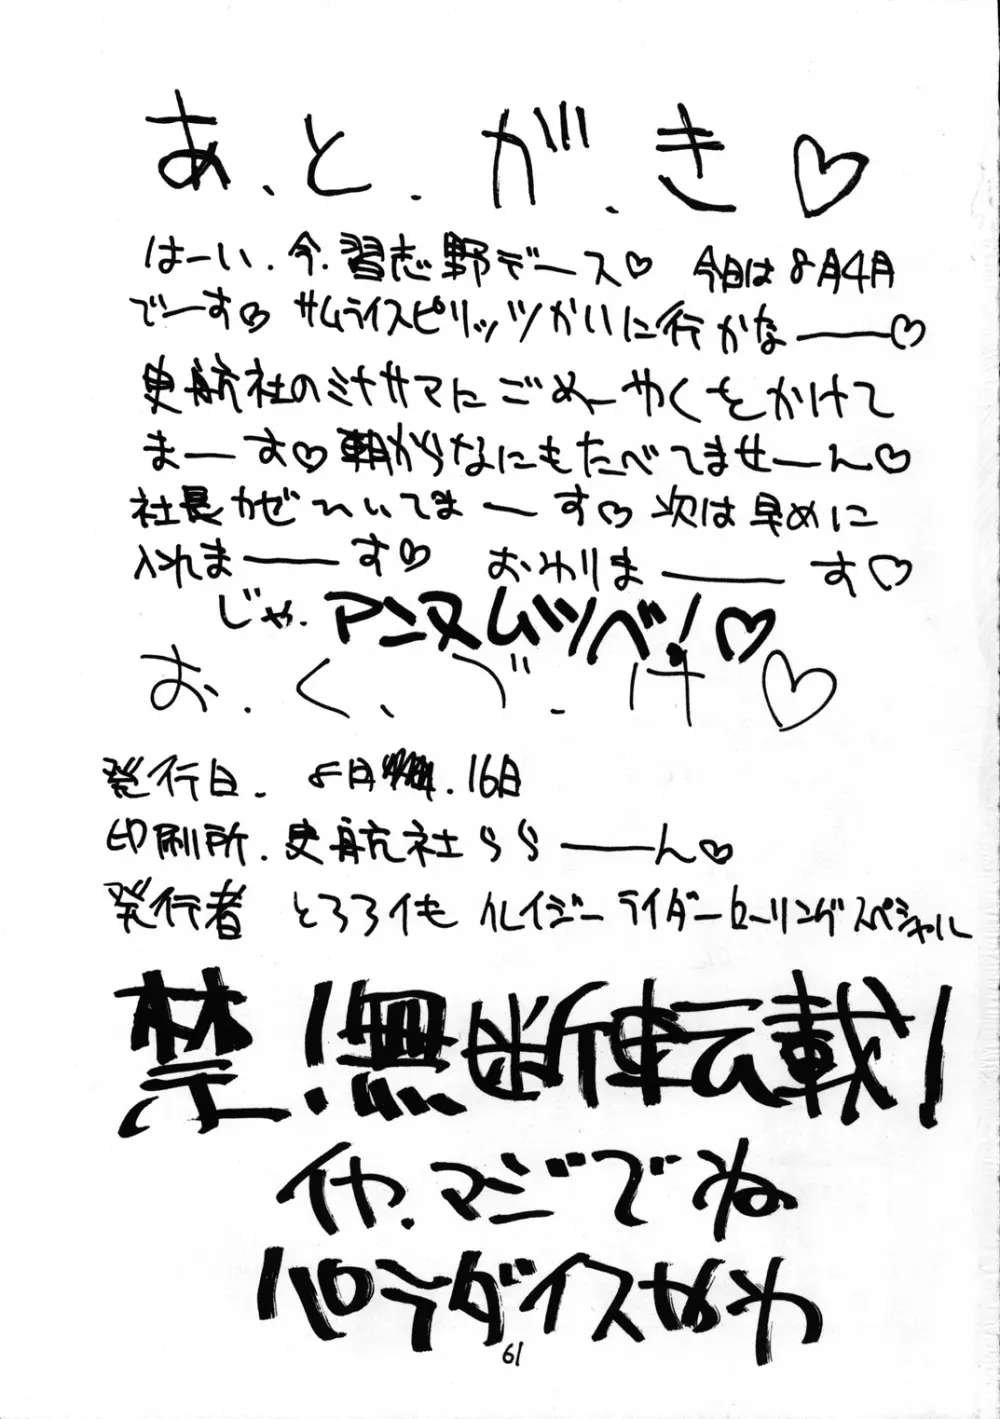 あ.と.が.き♡
はーい.今.習志野デース♡ 今日は8月4日
でーす♡ サムライスピリッツかいに行かなー♡
史航社のミナサマにごめーやくをかけて
まーす♡ 朝からなにもたべてませーん♡
社長かぜひいてまーす♡ 次は早めに
入れまーす♡ おわりまーす♡
じゃ.アンヌムツベ!♡
お.く.づ.け♡
発行日. 8月 .16日
印刷所.史航社ららーん♡
発行者 とろろイも クレイジーライダーローリングスペシャル
禁!無断転載!
イヤ.マジでね
パラダイスやわ
61